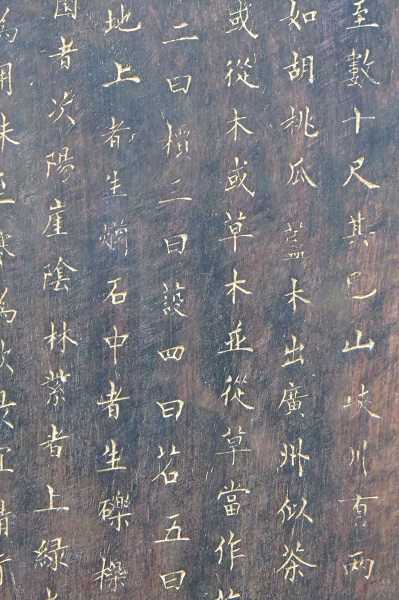 至數十尺其巴山峽川有兩
如胡桃瓜蘆木出廣州似茶
或從木或草木並從草當作
二曰檟三曰蔎四曰茗五曰
地上者生爛石中者生礫
園者次陽崖陰林紫者上綠
為用味至寒為飲最宜精行